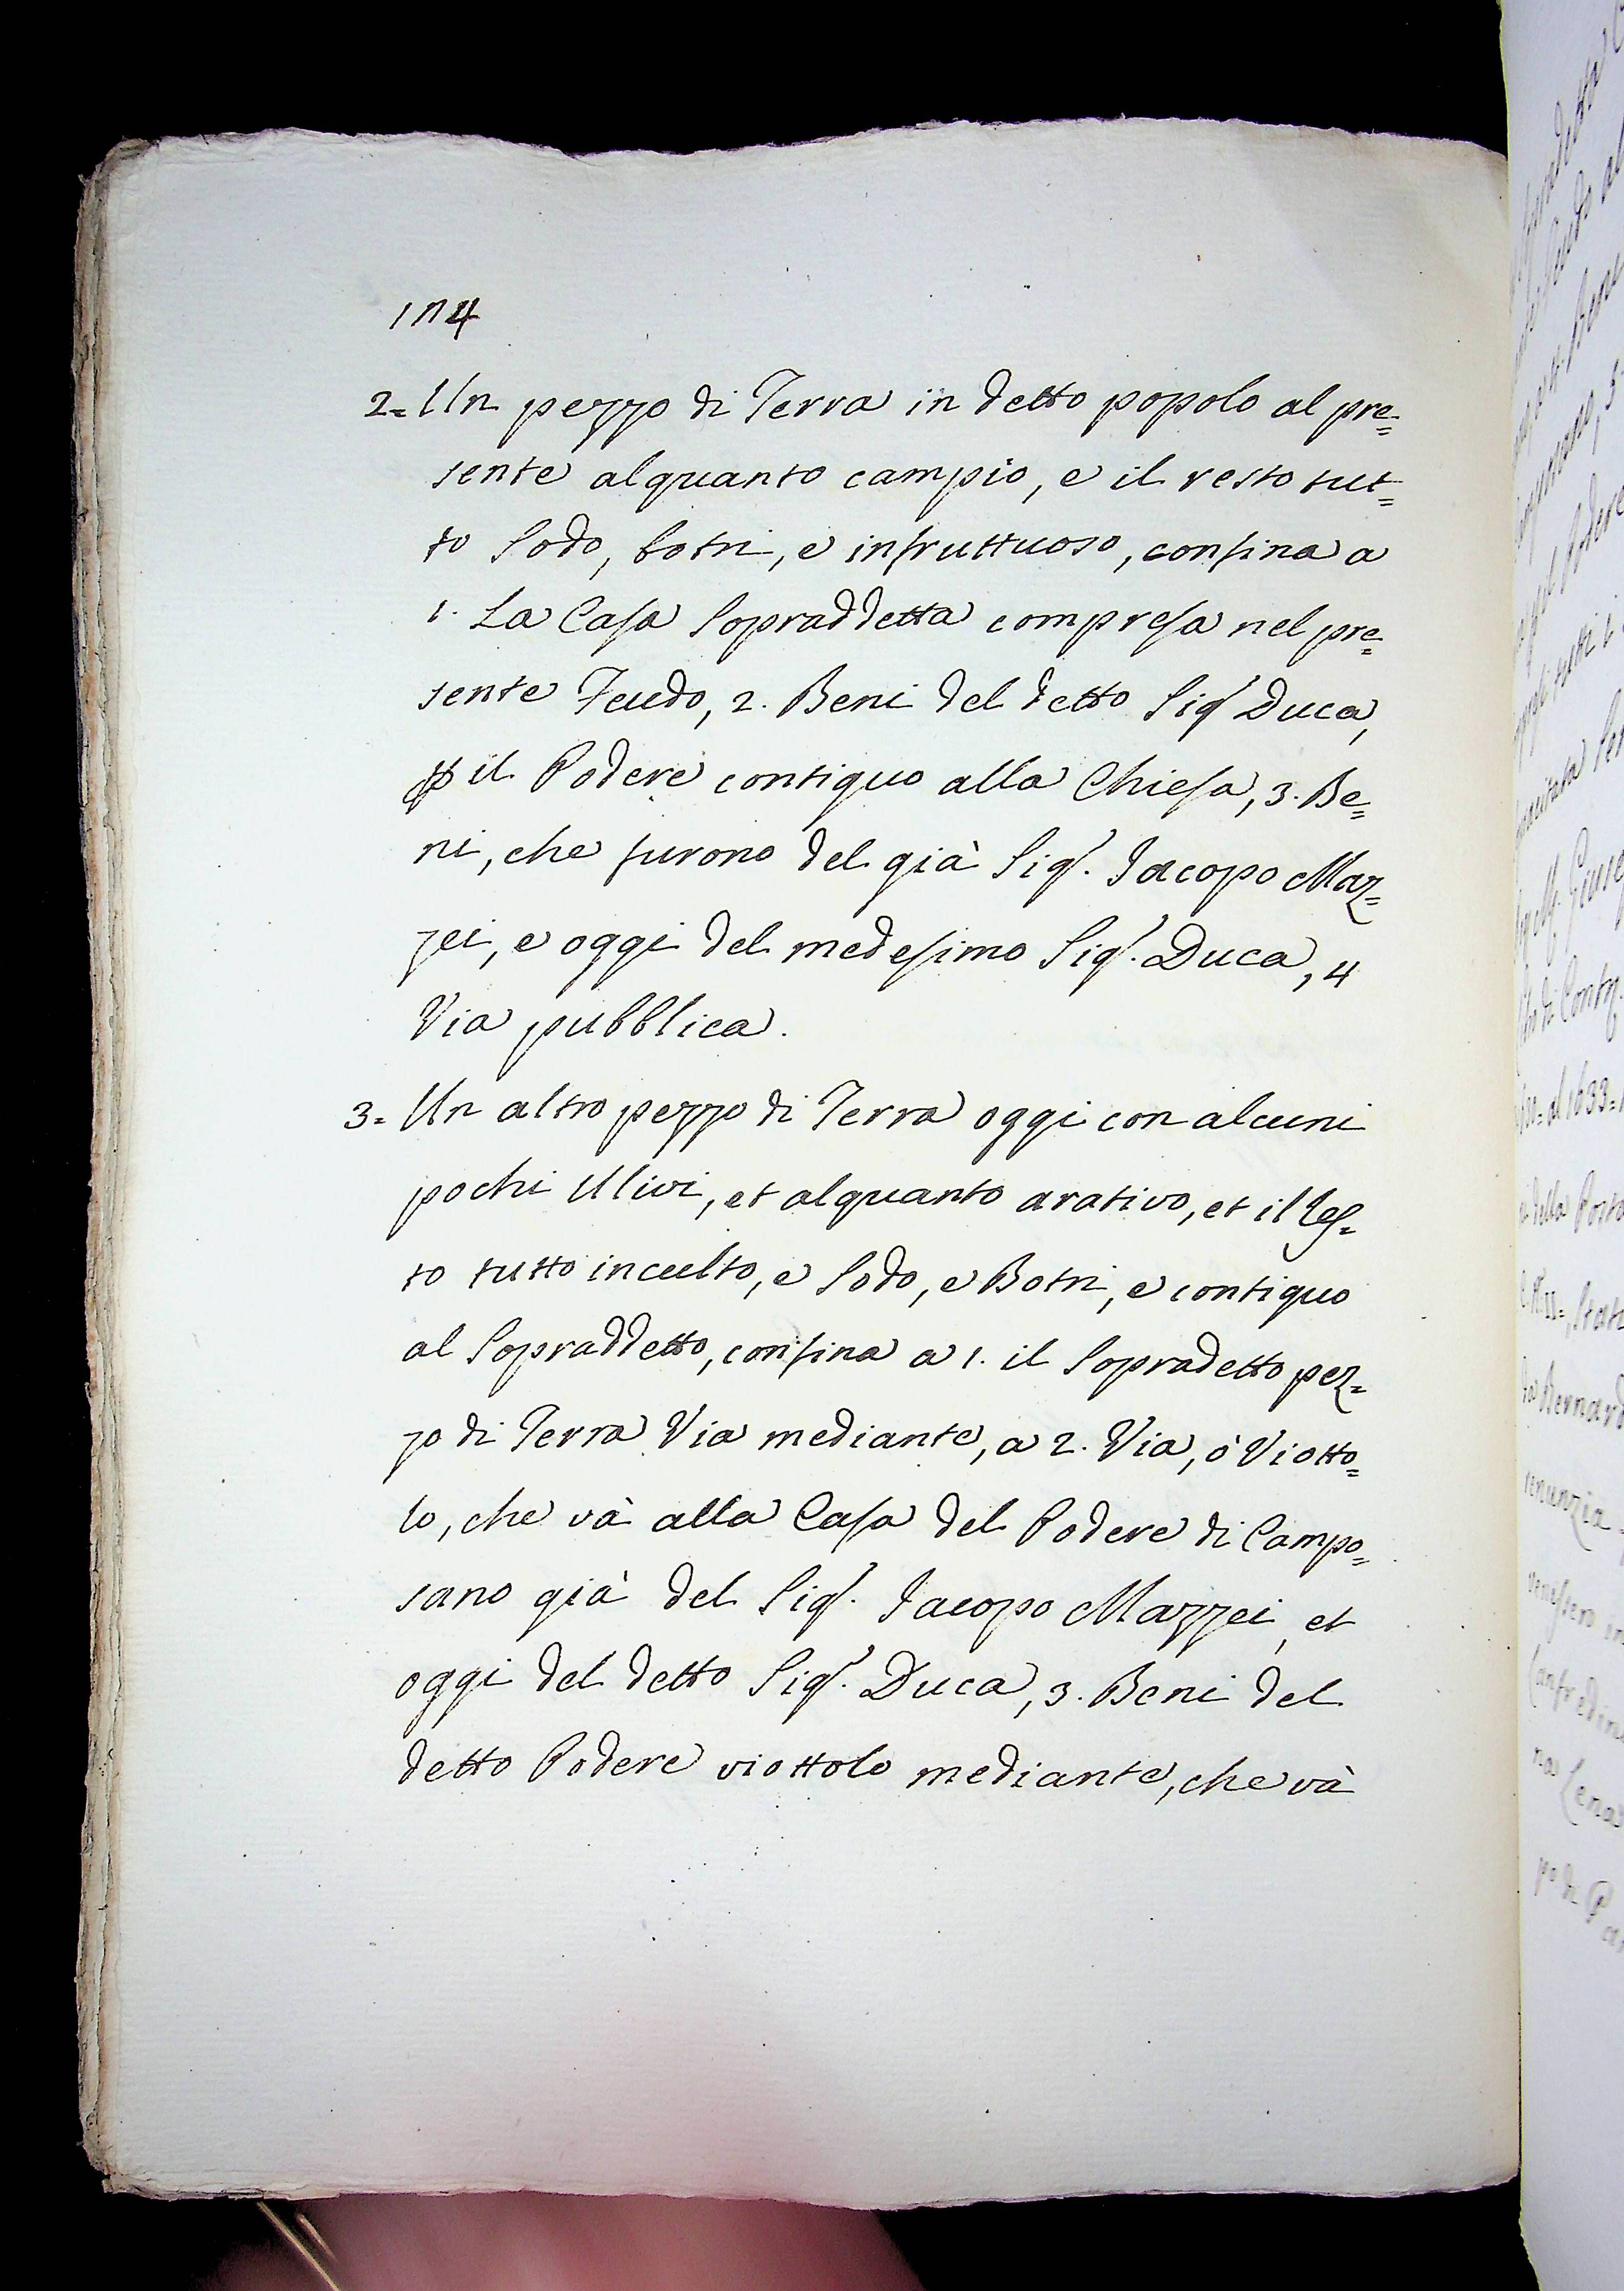 174
2= Un pezzo di Terra in detto popolo al pre=
sente alquanto campio, e il resto tut=
to Sodo, botri, e infruttuoso, confina a
1. La Casa Sopraddetta compresa nel pre=
sente Feudo, 2. Beni del detto Sigr Duca,
p il Podere contiguo alla Chiesa, 3. Be=
ni, che furono del già Sigr. Jacopo Maz=
zei, e oggi del medesimo Sigr. Duca, 4
Via pubblica.
3= Un altro pezzo di Terra oggi con alcuni
pochi Ulivi, et alquanto arativo, et il Res=
to tutto inculto, e Sodo, e Botri, e contiguo
al Sopraddetto, confina a 1. il Sopradetto pez=
zo di Terra Via mediante, a 2. Via, ò Viotto=
lo, che và alla Casa del Podere di Campo=
sano già del Sigr. Jacopo Mazzei, et
oggi del detto Sigr. Duca, 3. Beni del
detto Podere viottolo mediante, che và